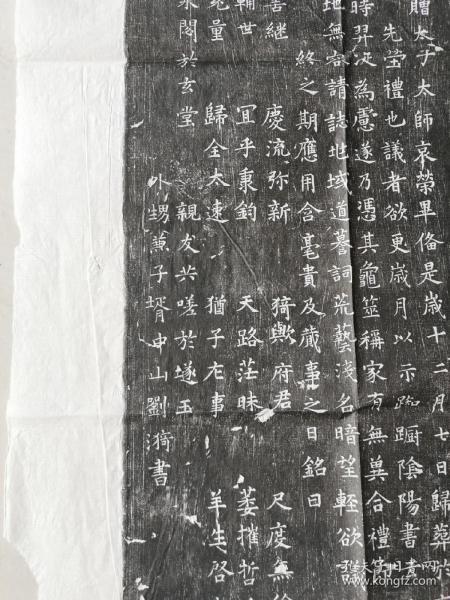 贈太子太師哀榮畢備是歲十二月七日歸葬於
先塋禮也議者欲更歲月以示
陰陽書
時羿浞為慮遂乃馮其龜筮稱家有無異合禮
地無
請誌地域道
詞荒藝淺名暗望輕欲
終之期應用含毫貴及葳事之日銘曰
善繼
慶流弥新
猗歟府君
尺度無
輔世
宜乎秉鈞
天路茫昧
萎摧哲
量
歸全太速
猶子在事
羊生啓
泉閣於玄堂
親友共嗟於
玉
外甥兼子壻中山劉漪書
kongfz.com